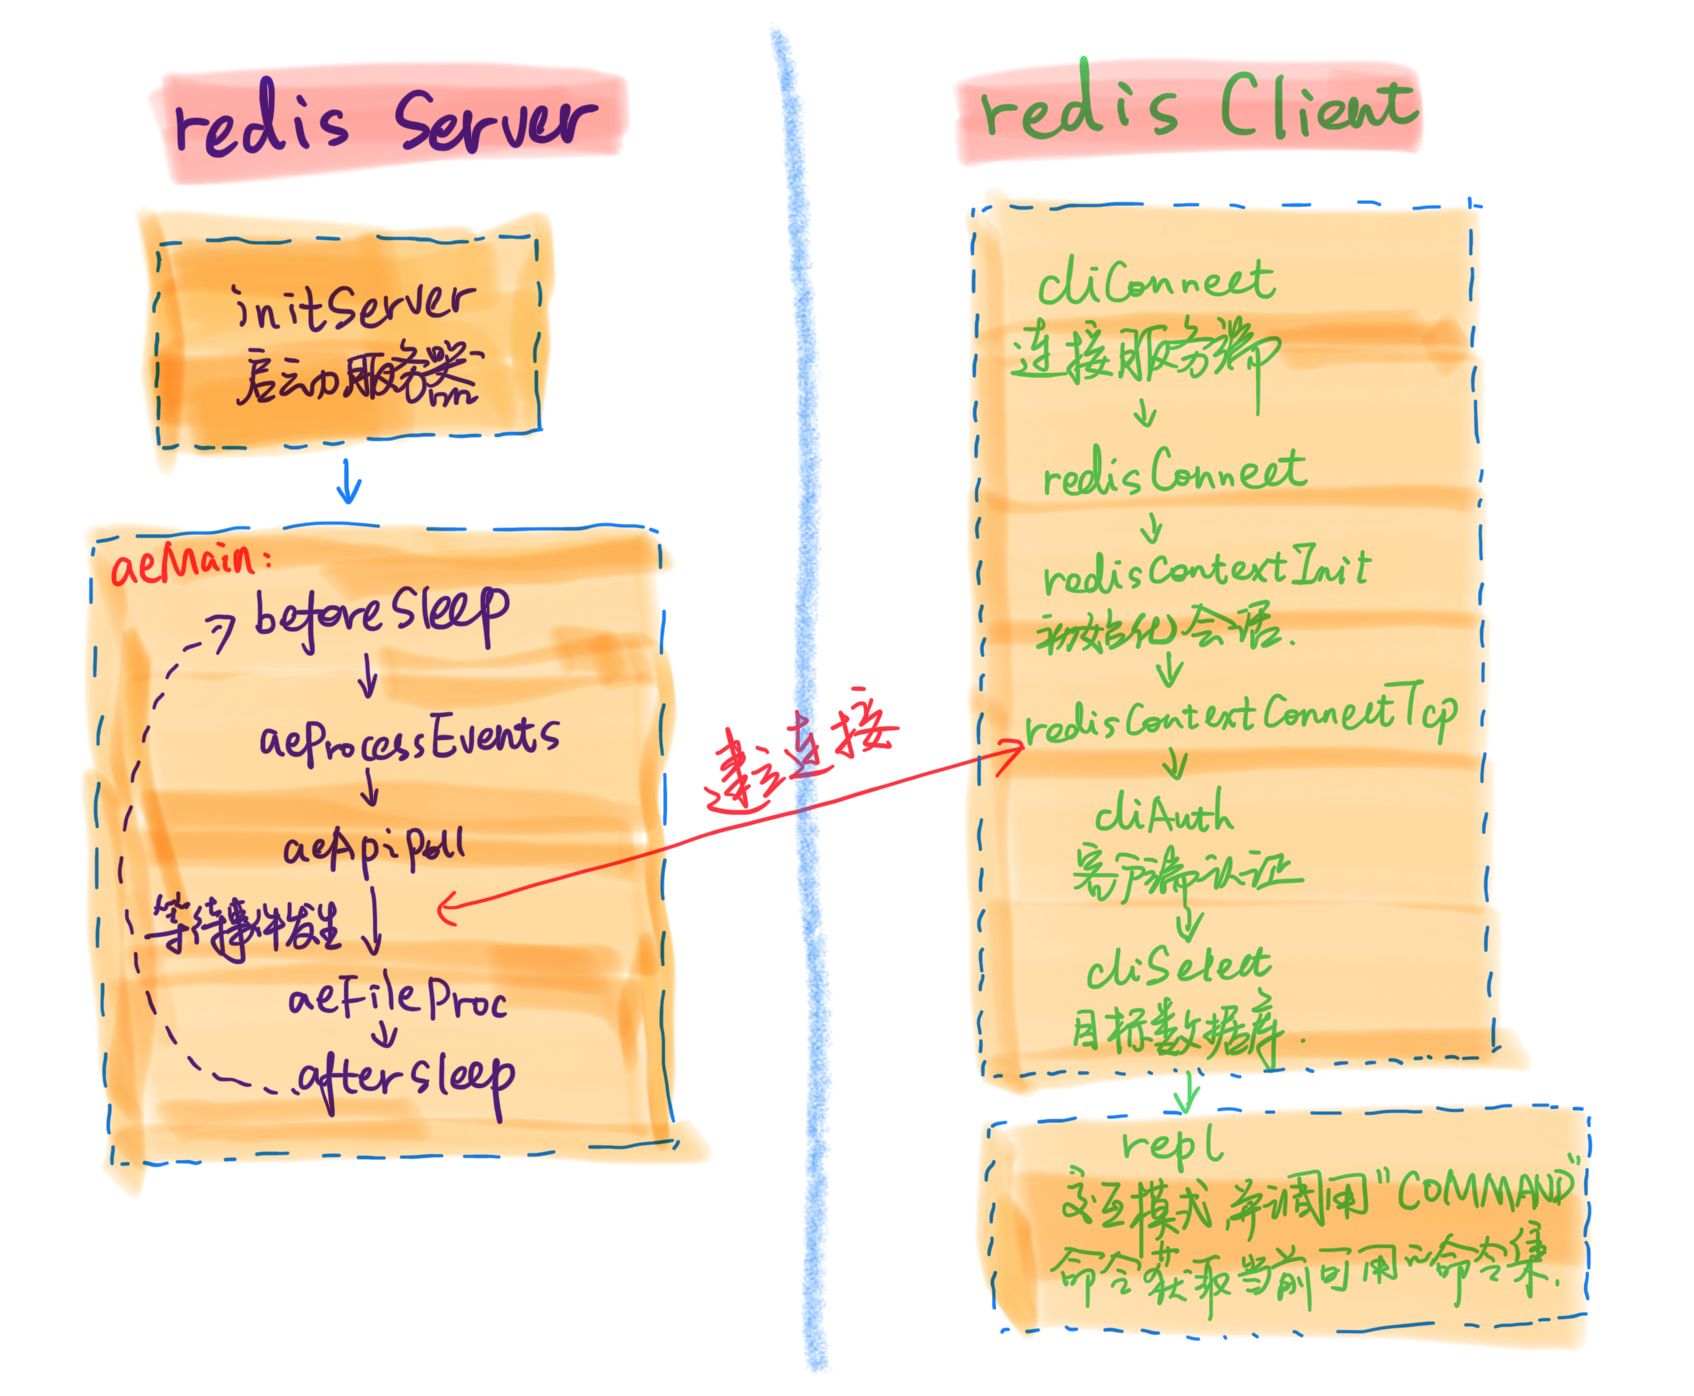 redis Server
initServer
启动服务器
aeMain:
beforeSleep
aeProcessEvents
aeApiPoll
等待事件发生
aeFileProc
aftersleep
建立连接
redis Client
cliConnect
连接服务端
redisConnect
redisContextInit
初始化会话.
redisContextConnectTcp
cliAuth
客户端认证
cliSelect
目标数据库.
repl
交互模式,并调用"COMMAND"
命令获取当前可用的命令集.